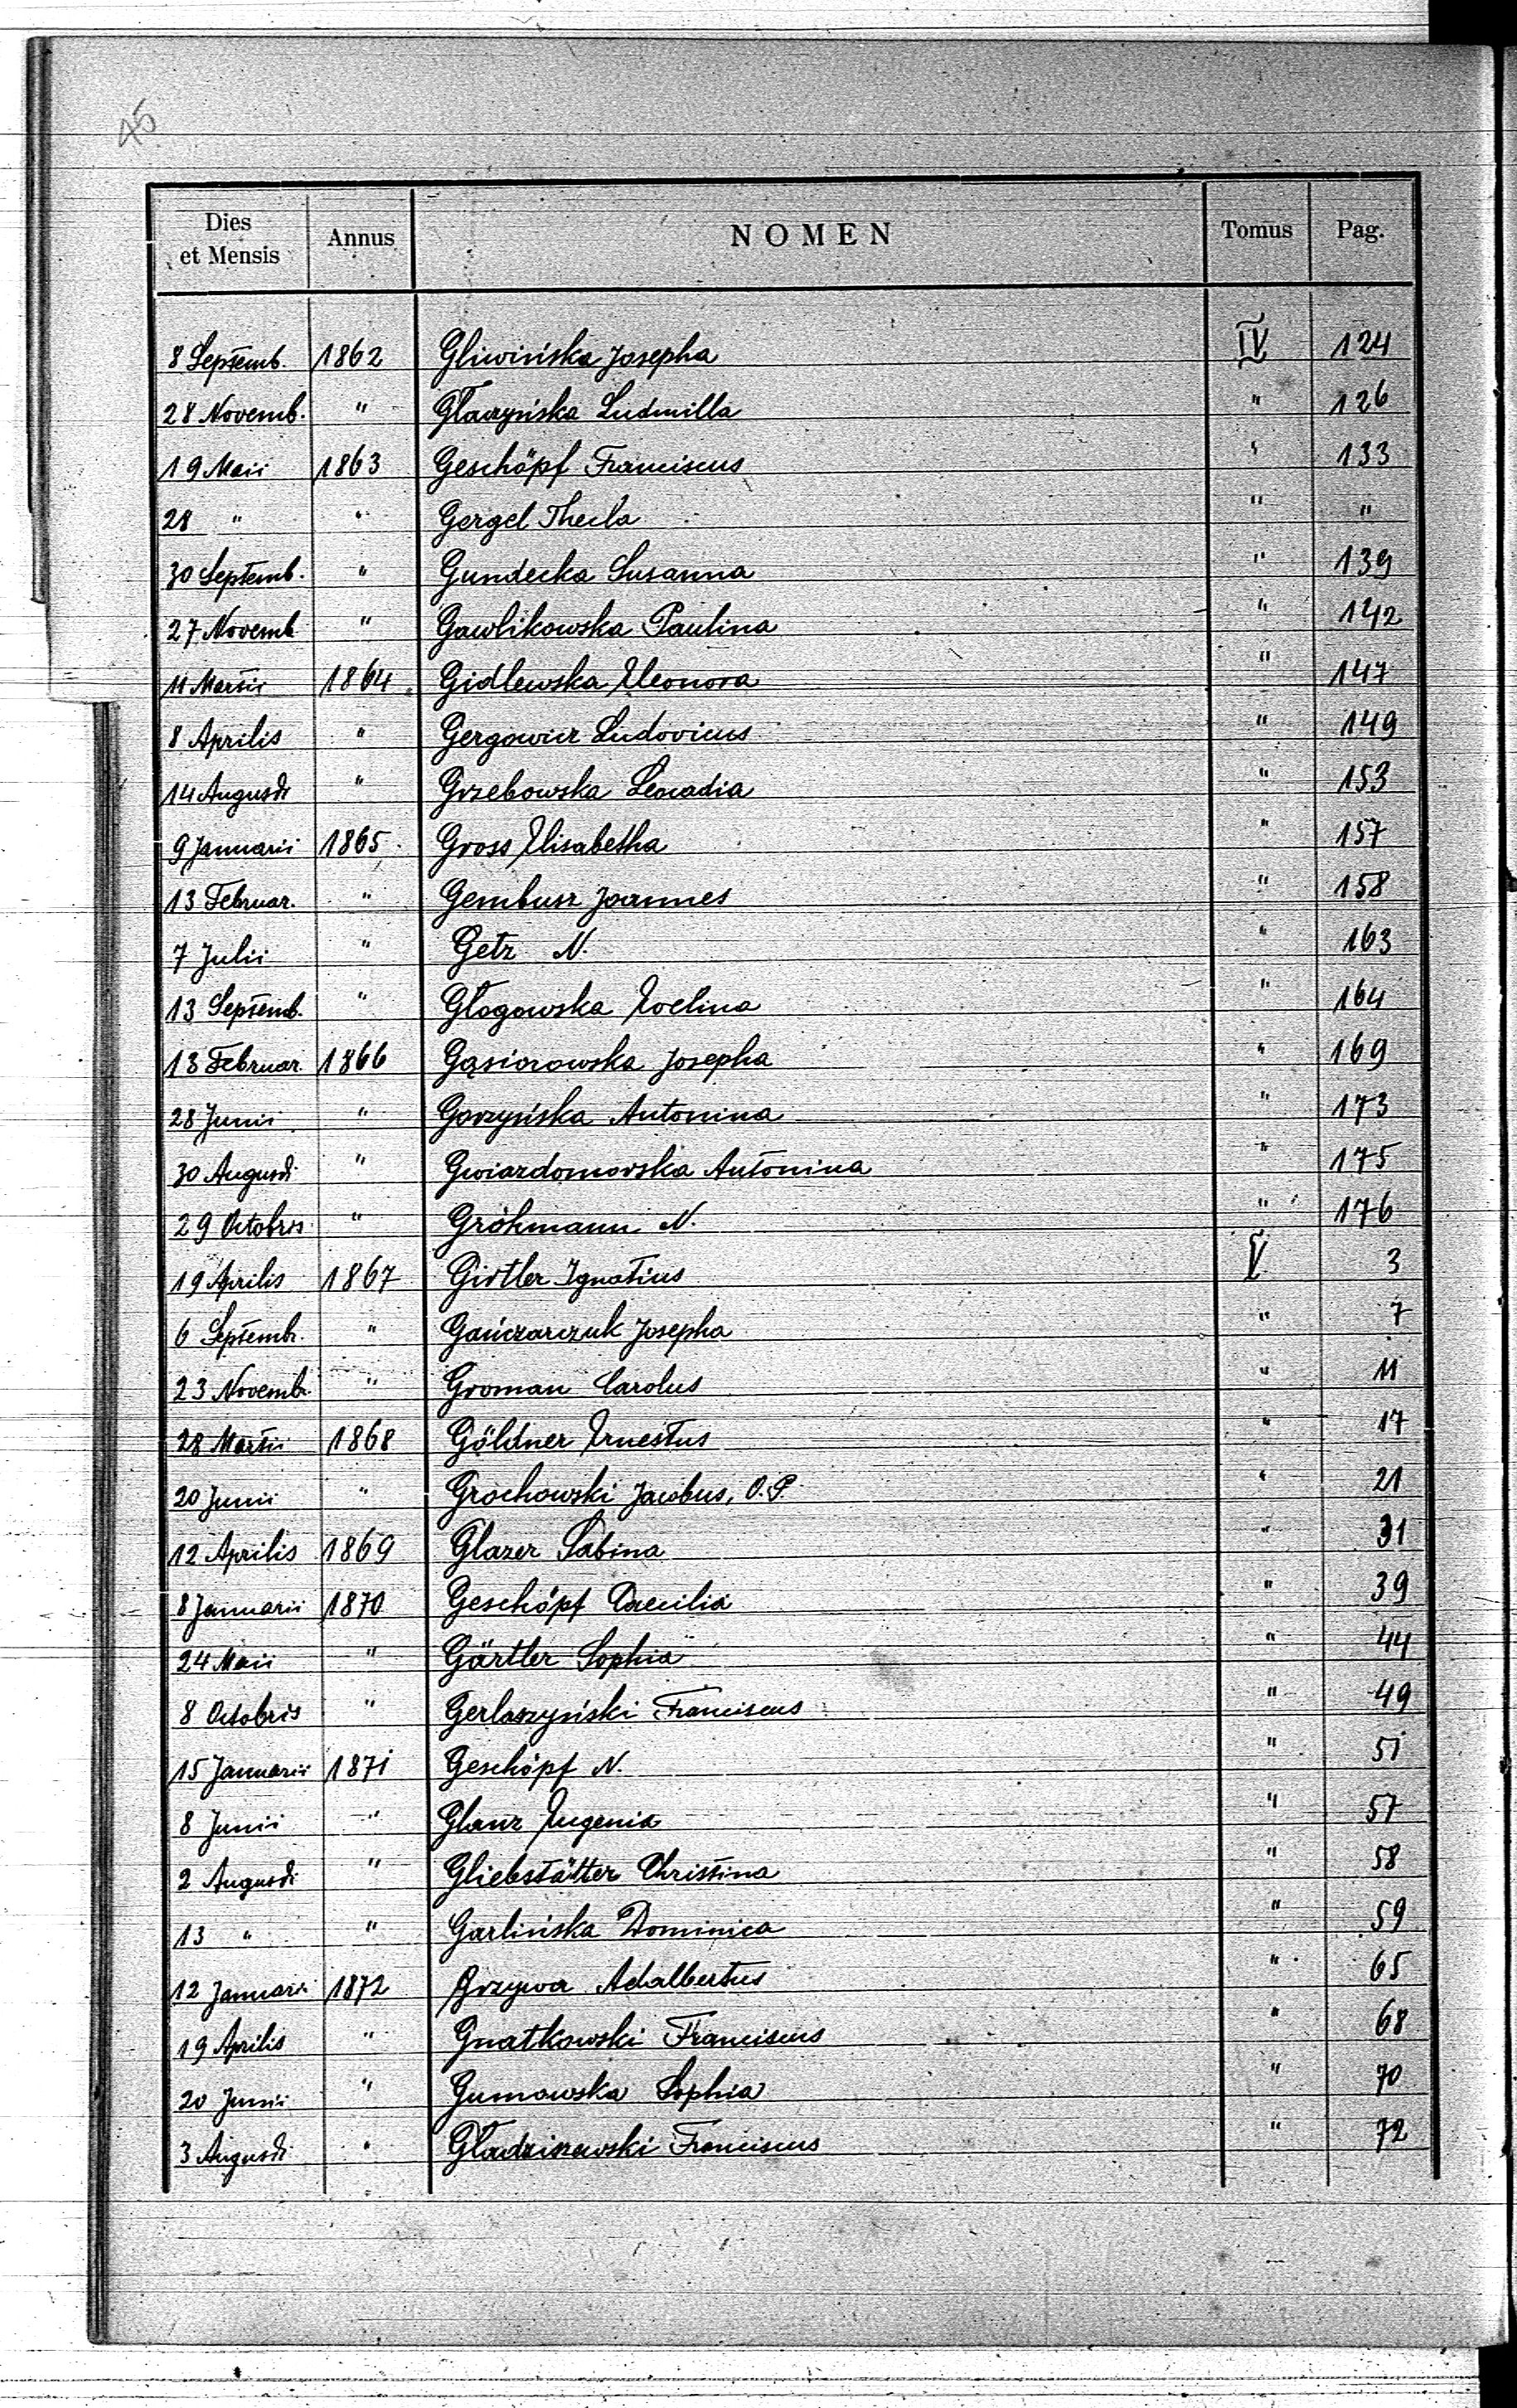 45
Dies et Mensis Annus NOMEN Tomus Pag.
8 Septemb. 1862 Gliwińska Josepha IV 124
28 Novemb. " Głaczyńska Ludmilla " 126
19 Maii 1863 Geschöpf Franciscus " 133
28 " " Gergel Thecla " "
30 Septemb. " Gundecka Susanna " 139
27 Novemb. " Gawlikowska Paulina " 142
11 Martii 1864 Gidlewska Eleonora " 147
8 Aprilis " Gergowicz Ludovicus " 149
14 Augusti " Grzebowska Leocadia " 153
9 Januarii 1865 Gross Elisabetha " 157
13 Februar. " Gembusz Joannes " 158
7 Julii " Getz N. " 163
13 Septemb. " Głogowska Evelina " 164
13 Februar. 1866 Gąsiorowska Josepha " 169
28 Junii " Gorzyńska Antonina " 173
30 Augusti " Gwiazdomorska Antonina " 175
29 Octobris " Gröhmann N. " 176
19 Aprilis 1867 Girtler Ignatius V 3
6 Septembr. " Gańczarczuk Josepha " 7
23 Novembr. " Groman Carolus " 11
28 Martii 1868 Göldner Ernestus " 17
20 Junii " Grochowski Jacobus, O.P. " 21
12 Aprilis 1869 Glazer Sabina " 31
8 Januarii 1870 Geschöpf Caecilia " 39
24 Maii " Gärtler Sophia " 44
8 Octobris " Gerlaszyński Franciscus " 49
15 Januarii 1871 Geschöpf N. " 51
8 Junii " Glanz Eugenia " 57
2 Augusti " Gliebstätter Christina " 58
13 " " Garlińska Dominica " 59
12 Januarii 1872 Grzywa Adalbertus " 65
19 Aprilis " Gnatkowski Franciscus " 68
20 Junii " Gumowska Sophia " 70
3 Augusti " Gładziszewski Franciscus " 72